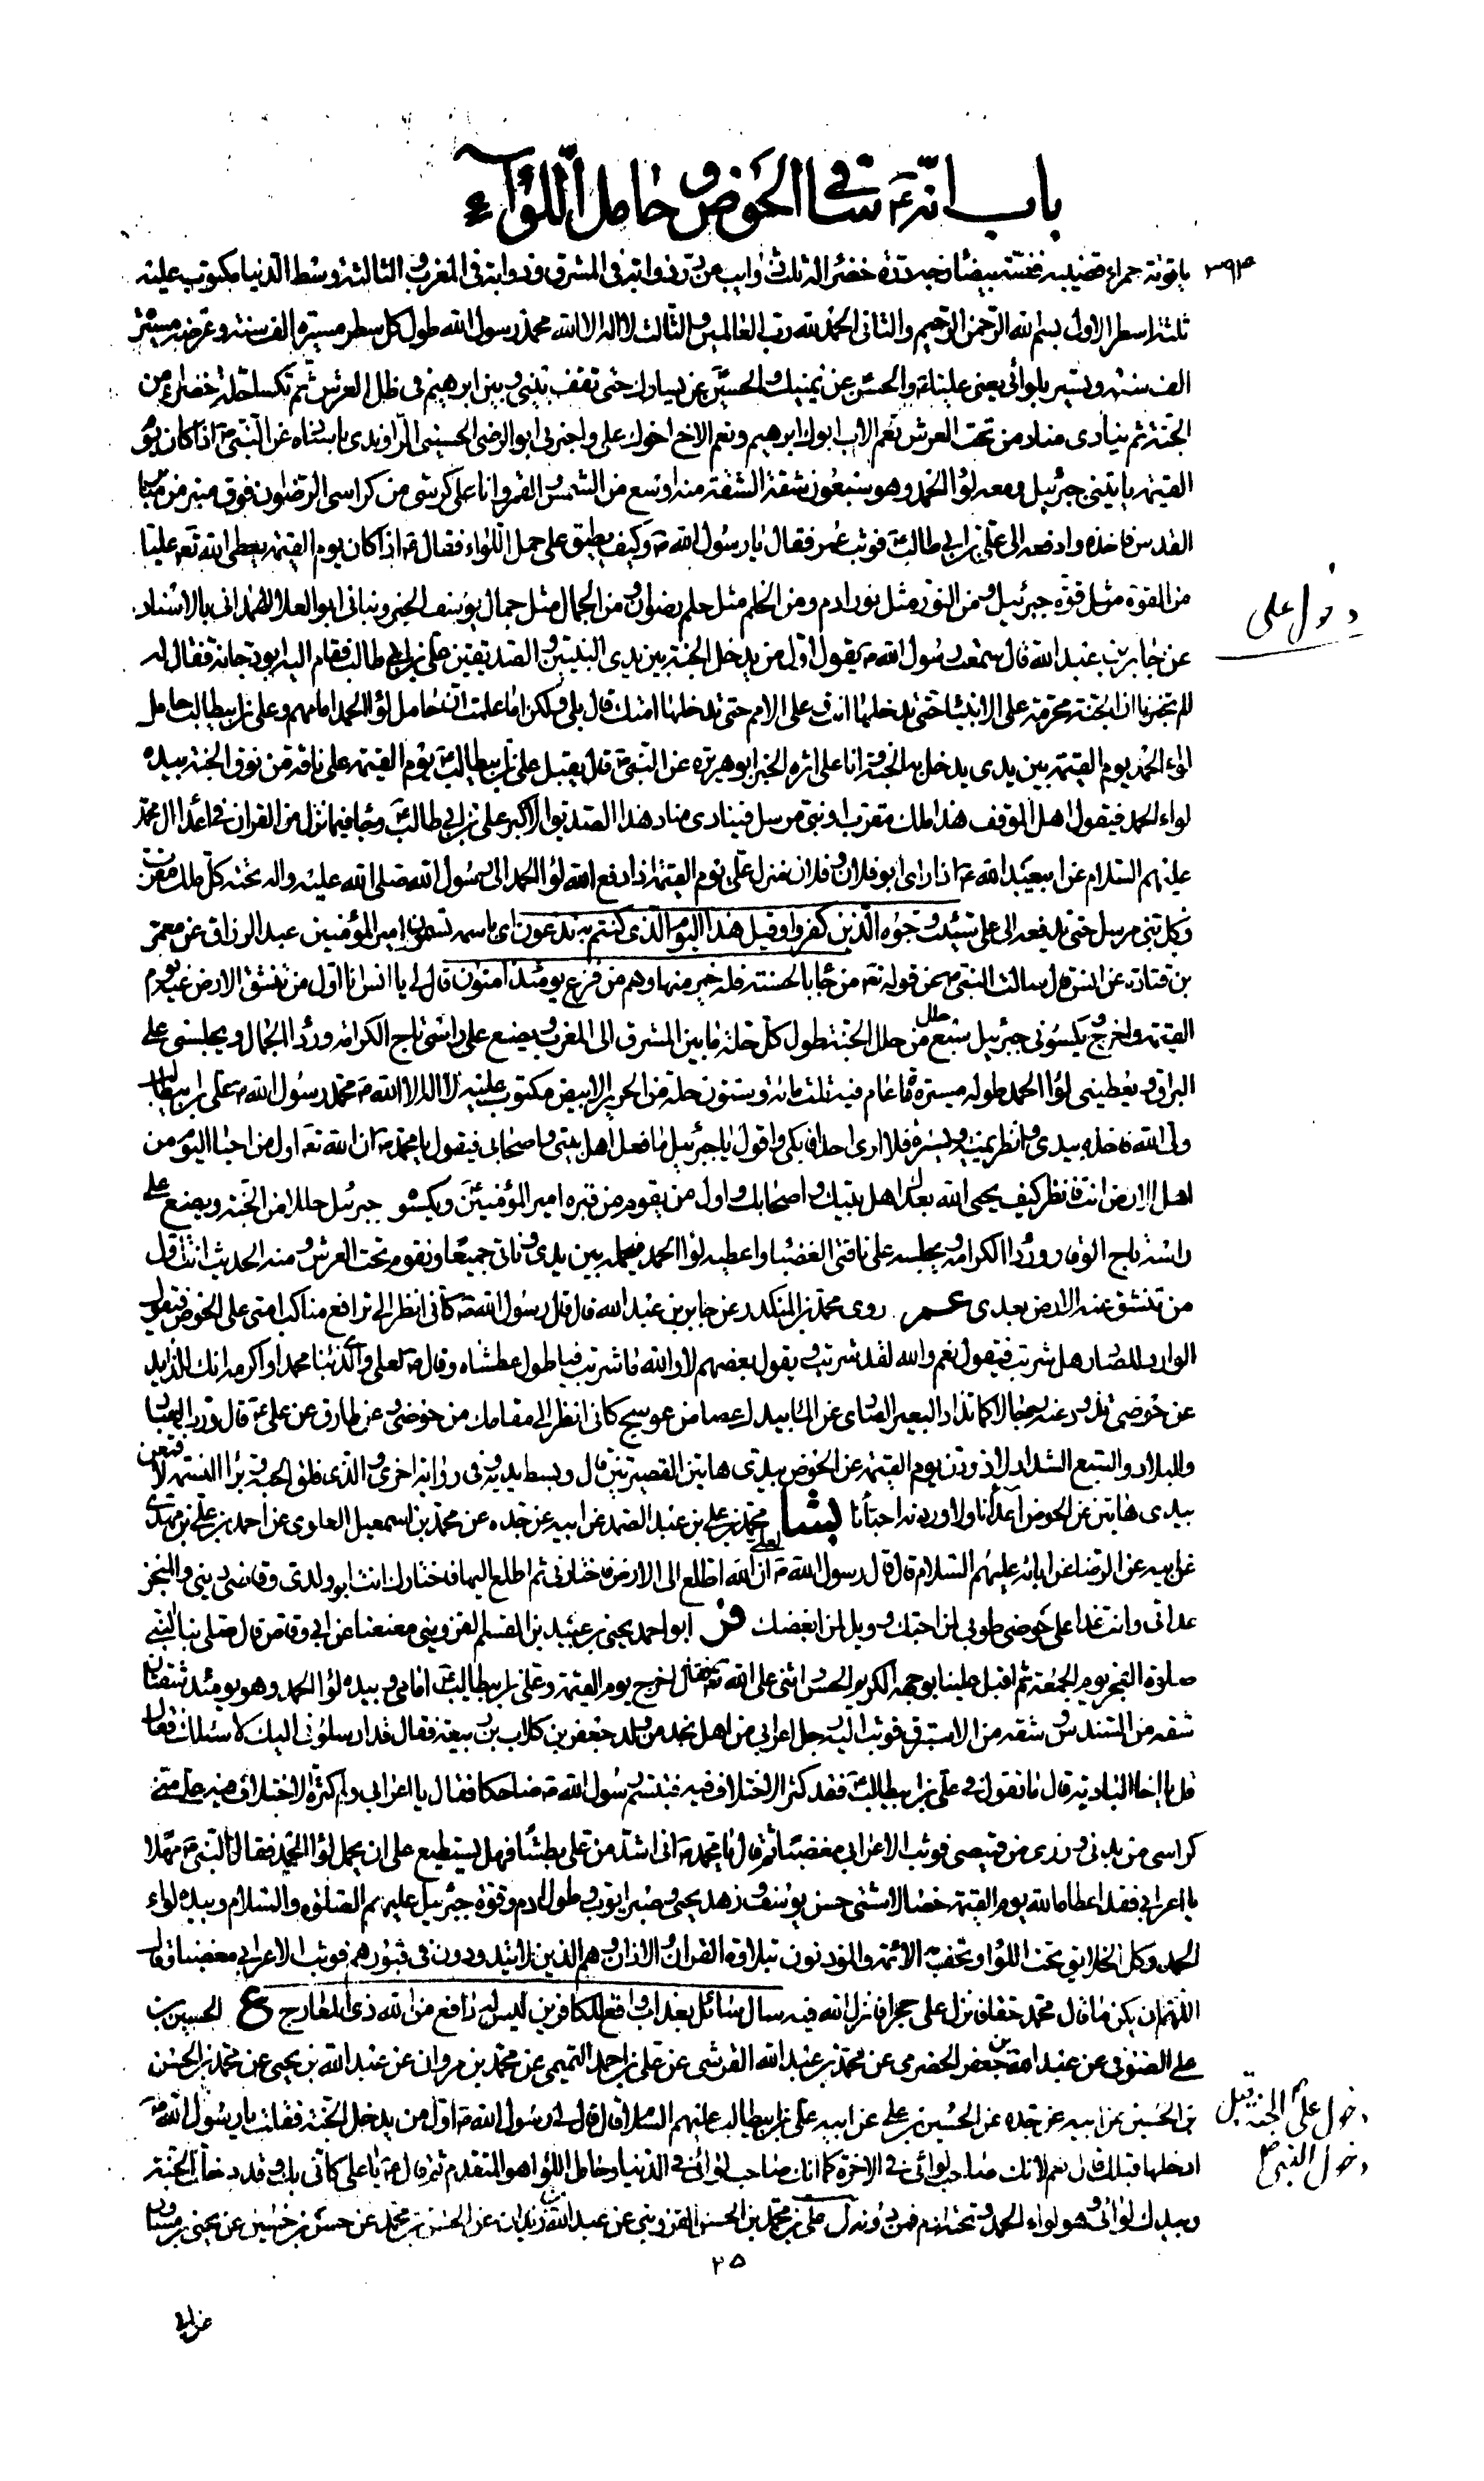 باب انّه ع ساقي الحوض و حامل اللّوآء
٣٩٣
ياقوتة حمراء قضيبه فضة بيضاء زجه درة خضراء له ثلث ذوائب من نور ذوابة في المشرق و ذوابة في المغرب و الثالثة وسط الدنيا مكتوب عليه
ثلثة اسطر الاول بسم الله الرحمن الرحيم و الثاني الحمد لله رب العالمين و الثالث لا اله الا الله محمد رسول الله طول كل سطر مسيرة الف سنة و عرضه مسيرة
الف سنة و تسير بلوائي يعني عليا ع و الحسن عن يمينك و الحسين عن يسارك حتى تقف بيني و بين ابرهيم في ظل العرش ثم تكسا حلة خضراء من
الجنة ثم ينادى مناد من تحت العرش نعم الاب ابوك ابرهيم و نعم الاخ اخوك علي و اخبرني ابو الرضي الحسيني الراوندي باسناده عن النبي ص اذا كان يوم
القيمة ياتيني جبرئيل و معه لواء الحمد و هو سبعون شقة الشقة منه اوسع من الشمس و القمر و انا على كرسي من كراسي الرضوان فوق منبر من منابر
القدس فاخذه و ادفعه الى علي بن ابي طالب ع فوثب عمر فقال يا رسول الله ص و كيف يطيق علي حمل اللواء فقال ص اذا كان يوم القيمة يعطي الله تع عليا
من القوة مثل قوة جبرئيل و من النور مثل نور ادم و من الحلم مثل حلم رضوان و من الجمال مثل جمال يوسف الخبر و نباني ابو العلا الهمداني بالاسناد
دخول علي
عن جابر بن عبد الله قال سمعت رسول الله ص يقول اول من يدخل الجنة بين يدي النبيين و الصديقين علي بن ابي طالب فقام اليه ابو دجانة فقال له
الم تخبرنا ان الجنة محرمة على الانبياء حتى تدخلها انت و على الامم حتى تدخلها امتك قال بلى و لكن اما علمت ان حامل لواء الحمد امامهم و علي بن ابيطالب حامل
لواء الحمد يوم القيمة بين يدي يدخل به الجنة و انا على اثره الخبر ابو هريرة عن النبي ص قال يقبل علي بن ابيطالب ع يوم القيمة على ناقة من نوق الجنة بيده
لواء الحمد فيقول اهل الموقف هذا ملك مقرب او نبي مرسل فينادى مناد هذا الصديق الاكبر علي بن ابي طالب ع و جا فيما نزل من القران في اعداء ال محمد
عليهم السلام عن ابيعبد الله ع اذا راى ابو فلان و فلان منزل علي يوم القيمة اذا دفع الله لواء الحمد الى رسول الله صلى الله عليه و اله تحته كل ملك مقرب
و كل نبي مرسل حتى يدفعه الى علي سيئت وجوه الذين كفروا و قيل هذا اليوم الذي كنتم به تدعون اي باسمه تسمون امير المؤمنين عبد الرزاق عن معمر
بن قتادة عن انس قال سالت النبي ص عن قوله تع من جاء بالحسنة فله خير منها و هم من فزع يومئذ امنون قال لي يا انس انا اول من تنشق الارض عنه يوم
القيمة و اخرج و يكسوني جبرئيل سبع حلل من حلل الجنة طول كل حلة ما بين المشرق الى المغرب و يضع على راسي تاج الكرامة و رداء الجمال و يجلسني على
البراق و يعطيني لواء الحمد طوله مسيرة مائة عام فيه ثلث مائة و ستون حلة من الحرير الابيض مكتوب عليه لا اله الا الله محمد رسول الله ص علي بن ابيطالب
ولي الله فاخذه بيدي و انظر يمنة و يسرة فلا ارى احدا فابكي و اقول يا جبرئيل ما فعل اهل بيتي و اصحابي فيقول يا محمد ص ان الله تع اول من احيا اليوم من
اهل الارض انت فانظر كيف يحيي الله بعدك اهل بيتك و اصحابك و اول من يقوم من قبره امير المؤمنين و يكسوه جبرئيل حللا من الجنة و يضع على
راسه تاج الوقار و رداء الكرامة و يجلسه على ناقتي الغضبا و اعطيه لواء الحمد فيحمله بين يدي و ناتي جميعا و نقوم تحت العرش و منه الحديث انت اول
من تنشق عنه الارض بعدي عمر روى محمد بن المنكدر عن جابر بن عبد الله قال قال رسول الله ص كاني انظر الى تدافع مناكب امتي على الحوض فيقول
الوارد للصادر هل شربت فيقول نعم و الله لقد شربت و يقول بعضهم لا و الله ما شربت فيا طول عطشاه و قال ص لعلي و الذي نبا محمدا و اكرمه انك لذائد
عن حوضي تذود عنه رجالا كما تذاد البعير الصادي عن الماء بيدك عصا من عوسج كاني انظر الى مقامك من حوضي و عن طارق عن علي ع قال و رب العباد
و البلاد و السبع الشداد لاذودن يوم القيمة عن الحوض بيدي هاتين القصيرتين قال و بسط يديه و في رواية اخرى و الذي فلق الحبة و برا النسمة لاقمعن
بيدي هاتين عن الحوض اعداءنا و لاوردنه احباءنا بشا محمد بن علي بن عبد الصمد عن ابيه عن جده عن محمد بن اسمعيل العلوي عن احمد بن علي بن مهدي
عن ابيه عن الرضا عن ابائه عليهم السلام قال قال رسول الله ص لعلي ان الله اطلع الى الارض فاختارني ثم اطلع اليها فاختارك انت ابو ولدي و قاضي ديني و المنجز
عداتي و انت غدا على حوضي طوبى لمن احبك و ويل لمن ابغضك فر ابو احمد يحيى بن عبيد بن القسم القزويني معنعنا عن ابي وقاص قال صلى بنا النبي
صلوة الفجر يوم الجمعة ثم اقبل علينا بوجهه الكريم الحسن و اثنى على الله تع فقال اخرج يوم القيمة و علي بن ابيطالب ع امامي و بيده لواء الحمد و هو يومئذ شقتان
شقة من السندس و شقة من الاستبرق فوثب اليه رجل اعرابي من اهل نجد من ولد جعفر بن كلاب بن ربيعة فقال قد ارسلوني اليك لاسئلك فقال
قل يا اخا البادية قال ما تقول في علي بن ابيطالب ع فقد كثر الاختلاف فيه فتبسم رسول الله ص ضاحكا فقال يا اعرابي و لم كثر الاختلاف فيه علي مني
كراسي من بدني و زري من قميصي فوثب الاعرابي مغضبا ثم قال يا محمد ص اني اشد من علي بطشا فهل يستطيع علي ان يحمل لواء الحمد فقال النبي ص مهلا
يا اعرابي فقد اعطاه الله يوم القيمة خصالا شتى حسن يوسف و زهد يحيى و صبر ايوب و طول ادم و قوة جبرئيل عليهم الصلوة و السلام و بيده لواء
الحمد و كل الخلايق تحت اللواء و تحف به الائمة و المؤذنون بتلاوة القران و الاذان و هم الذين لا يتبددون في قبورهم فوثب الاعرابي مغضبا و قال
اللهم ان يكن ما قال محمد حقا فانزل علي حجرا فانزل الله فيه سال سائل بعذاب واقع للكافرين ليس له دافع من الله ذي المعارج ع الحسين بن
علي الصوفي عن عبد الله بن جعفر الحضرمي عن محمد بن عبد الله القرشي عن علي بن احمد التميمي عن محمد بن مروان عن عبد الله بن يحيى عن محمد بن الحسن
بن الحسين عن ابيه عن جده عن الحسين بن علي عن ابيه علي بن ابيطالب عليهم السلام قال قال لي رسول الله ص اول من يدخل الجنة فقلت يا رسول الله ص
دخول علي الجنة قبل
دخول النبي ص
ادخلها قبلك قال نعم لانك صاحب لوائي في الاخرة كما انك صاحب لوائي في الدنيا و حامل اللواء هو المتقدم ثم قال ص يا علي كاني بك و قد دخلت الجنة
و بيدك لوائي و هو لواء الحمد و تحته ادم فمن دونه ل علي بن محمد بن الحسن القزويني عن عبد الله بن زيدان عن الحسن بن محمد عن حسن بن حسين عن يحيى بن مساور
٢٥
عن ابي